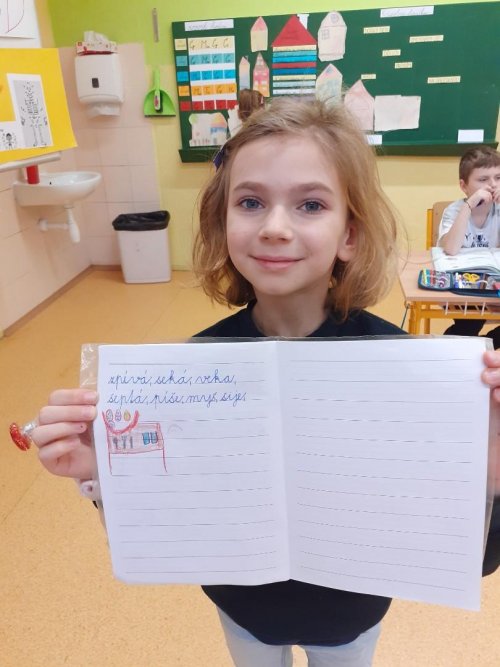 zpívá, seká, veka,
šeptá, píše, myš, šije,